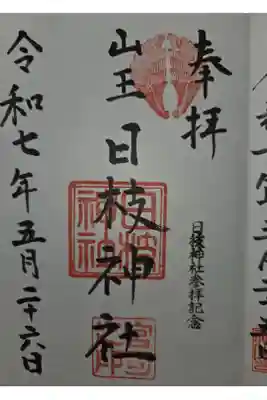 奉拝
日枝神社参拝記念
山王
日枝神社
令和七年五月二十六日